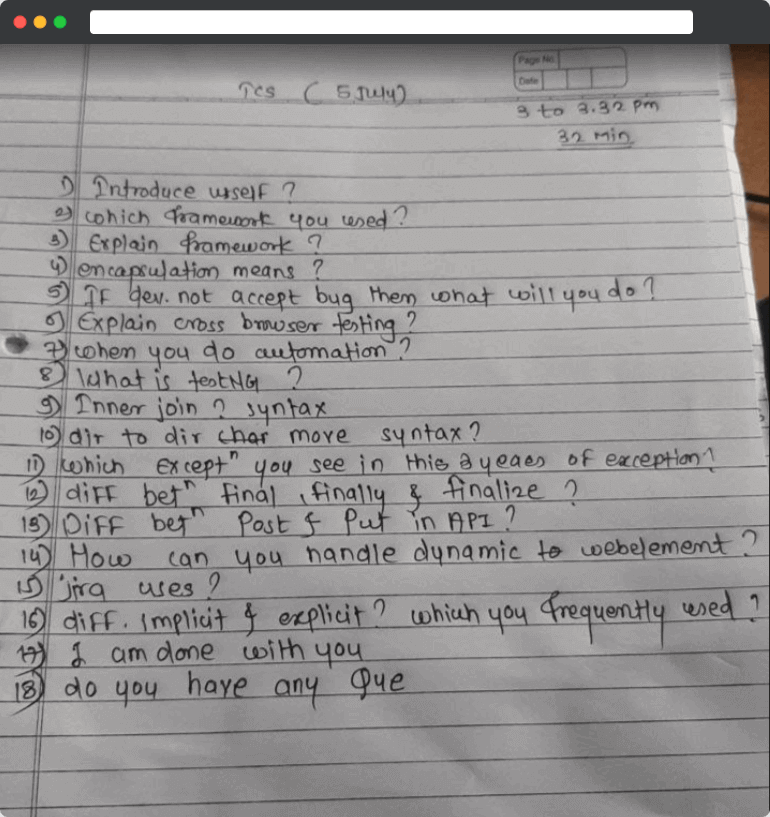 Page No.
Date
TCS ( 5 July)
3 to 3.32 pm
32 Min
1) Introduce urself ?
2) which framework you used ?
3) Explain framework ?
4) encapsulation means ?
5) If dev. not accept bug them what will you do ?
6) Explain cross browser testing ?
7) when you do automation ?
8) What is testNG ?
9) Inner join ? syntax
10) dir to dir char move syntax ?
11) which Exceptⁿ you see in this 2 yeaes of exception?
12) diff betⁿ final , finally & finalize ?
13) Diff betⁿ Post & Put in API ?
14) How can you handle dynamic to webelement ?
15) jira uses ?
16) diff. implicit & explicit ? which you frequently used ?
17) I am done with you
18) do you have any Que